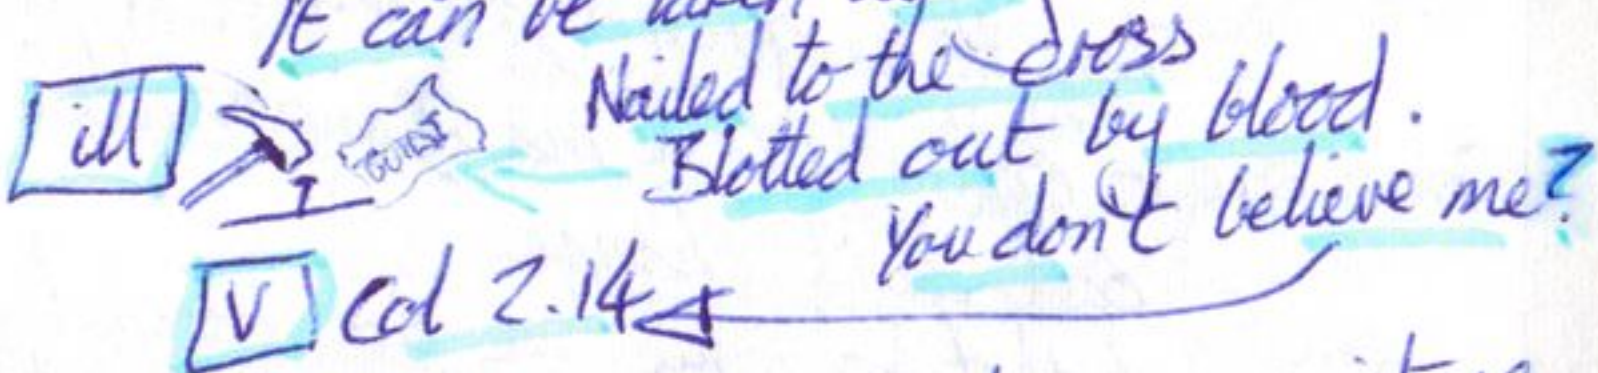 It can be taken
ill
Nailed to the cross
Blotted out by blood.
You don't believe me?
V Col 2.14